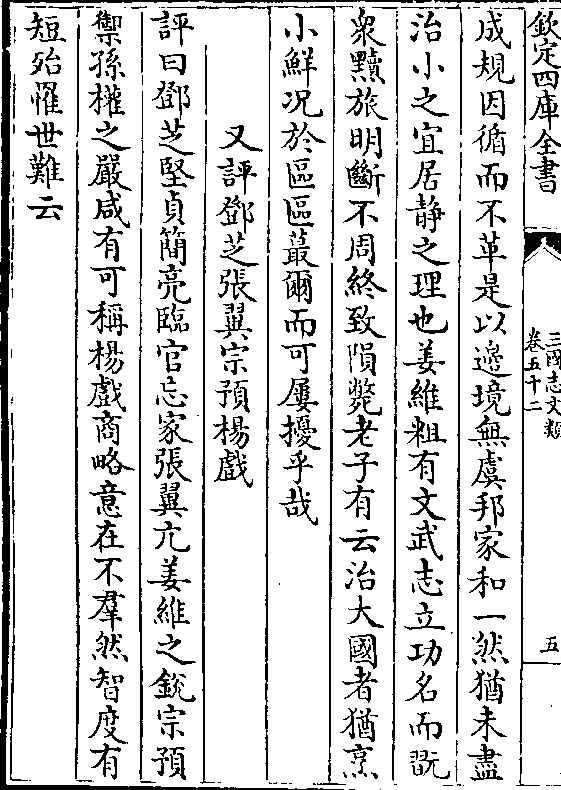 欽定四庫全書
三國志文類
卷五十二
五
成規因循而不革是以邊境無虞邦家和一然猶未盡
治小之宜居静之理也姜維粗有文武志立功名而翫
衆黷旅明斷不周終致隕斃老子有云治大國者猶烹
小鮮况於區區蕞爾而可屢擾乎哉
又評鄧芝張翼宗預楊戲
評曰鄧芝堅貞簡亮臨官忘家張翼亢姜維之鋭宗預
禦孫權之嚴咸有可稱楊戲商略意在不羣然智度有
短殆罹世難云